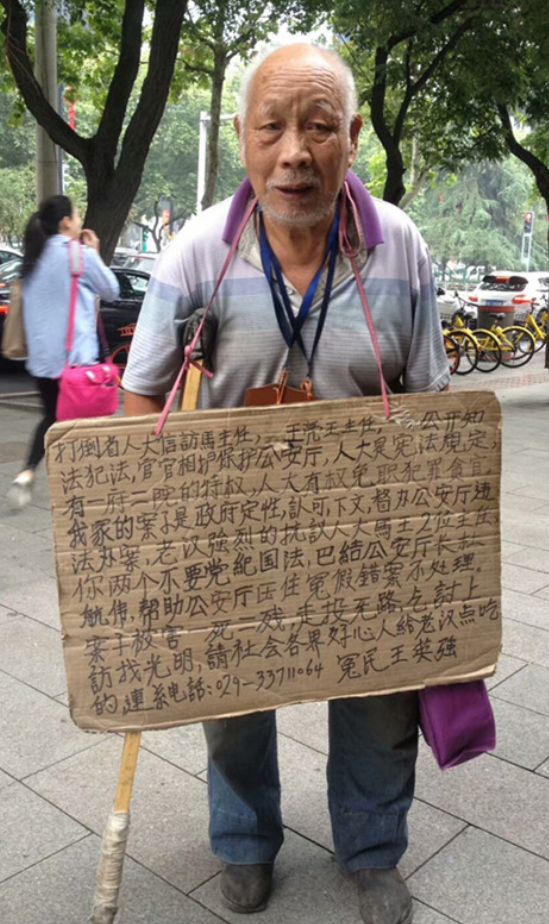 打倒省人大信訪馬主任，王党王主任，公开知
法犯法，官官相护保护公安厅，人大是宪法規定，
有一府二院的特权，人大有权免职犯罪貪官，
我家的案子是政府定性，認可，下文，督办公安厅违
法办案，老汉強烈的抗议人大馬王2位主任，
你两个不要党紀国法，巴結公安厅长杜
航伟，帮助公安厅压住冤假錯案不处理。
案子被害一死二残，走投无路，乞討上
訪找光明，請社会各界好心人給老汉点吃
的連系电話：029-33711064 冤民王英強